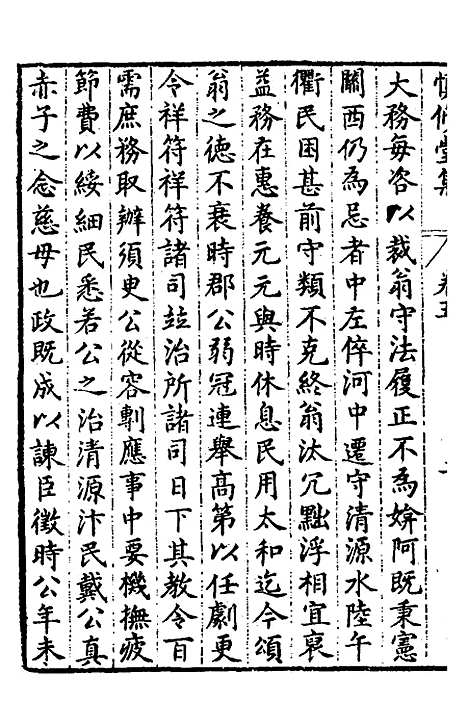 慎修堂集 卷五
大務每咨以裁翁守法履正不為媕阿既秉憲
關西仍為忌者中左倅河中遷守清源水陸午
衢民困甚前守類不克終翁汰冗黜浮相宜裒
益務在惠養元元與時休息民用太和迄今頌
翁之德不衰時郡公弱冠連舉高第以任劇更
令祥符祥符諸司竝治所諸司日下其教令百
需庶務取辦須臾公從容剸應事中要機撫疲
節費以綏細民悉若公之治清源汴民戴公真
赤子之念慈母也政既成以諫臣徵時公年未